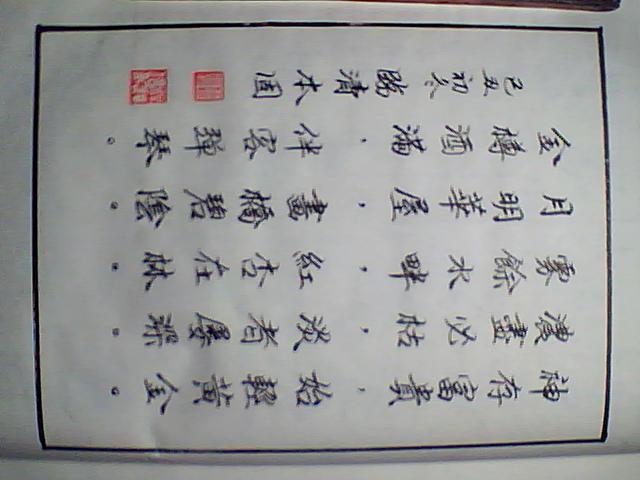 神存富貴，始輕黃金。
濃盡必枯，淡者屢深。
霧餘水畔，紅杏在林。
月明華屋，畫橋碧陰。
金樽酒滿，伴客彈琴。
己丑初冬臨清本固